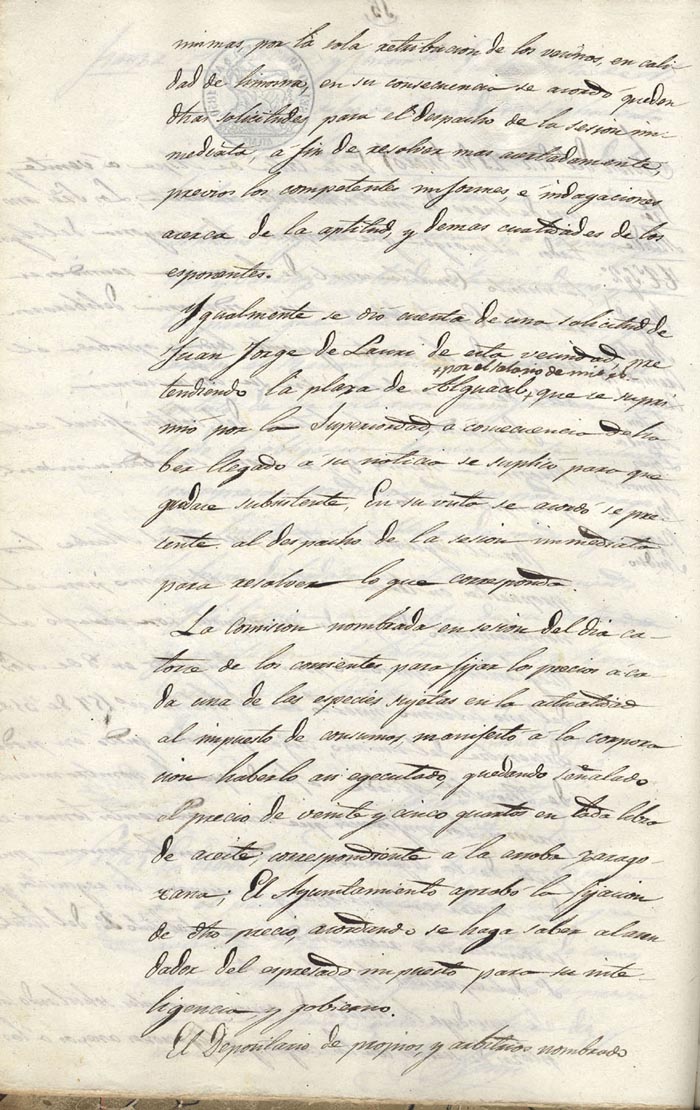 mimas, por la sola retribucion de los vecinos, en cali-
dad de limosna, en su consecuencia se acordó queden
dhas solicitudes para el despacho de la sesion in-
mediata, a fin de resolver mas acertadamente,
previos los competentes informes, é indagaciones
acerca de la aptitud, y demas cualidades de los
esponentes.
Ygualmente se dió cuenta de una solicitud de
Juan Jorge de Lauri de esta vecindad, pre
+ por el salario de mil
tendiendo la plaza de Alguacil, + que se supri-
mió por la Superioridad, a consecuencia de ha
ber llegado a su noticia se suplicó para que
quedase subsistente, En su vista se acordó se pre-
sente al despacho de la sesion immediata
para resolver lo que corresponda.
La Comision nombrada en sesion del dia ca-
torce de los corrientes para fijar los precios a ca
da una de las especies sujetas en la actualidad
al impuesto de consumos, manifestó a la corpora
cion haberlo asi egecutado, quedando señalado
el precio de veinte y cinco cuartos en cada libra
de aceite, correspondiente á la arroba zarago-
zana; El Ayuntamiento aprobó la fijacion
de dho precio, acordando se haga saber al arren
dador del espresado impuesto para su inte-
ligencia y gobierno.
El Depositario de propios, y arbitrios nombrado